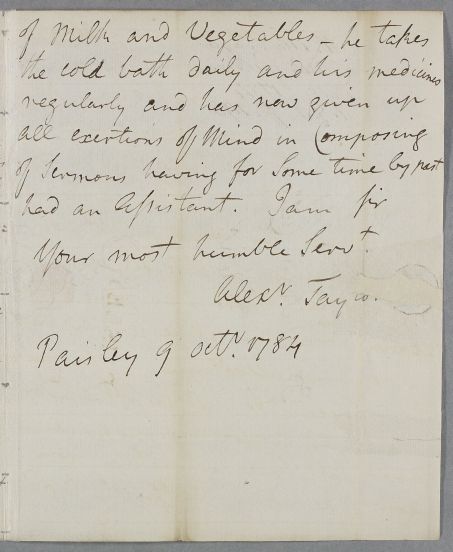 of Milk and Vegetables – he takes
the cold bath daily and his medicines
regularly and has now given up
all exertions of Mind in Composing
of Sermons having for Some time by past
had an Assistant. I am Sir
Your most humble Servt.
Alexr.
Paisley 9 octr. 1784